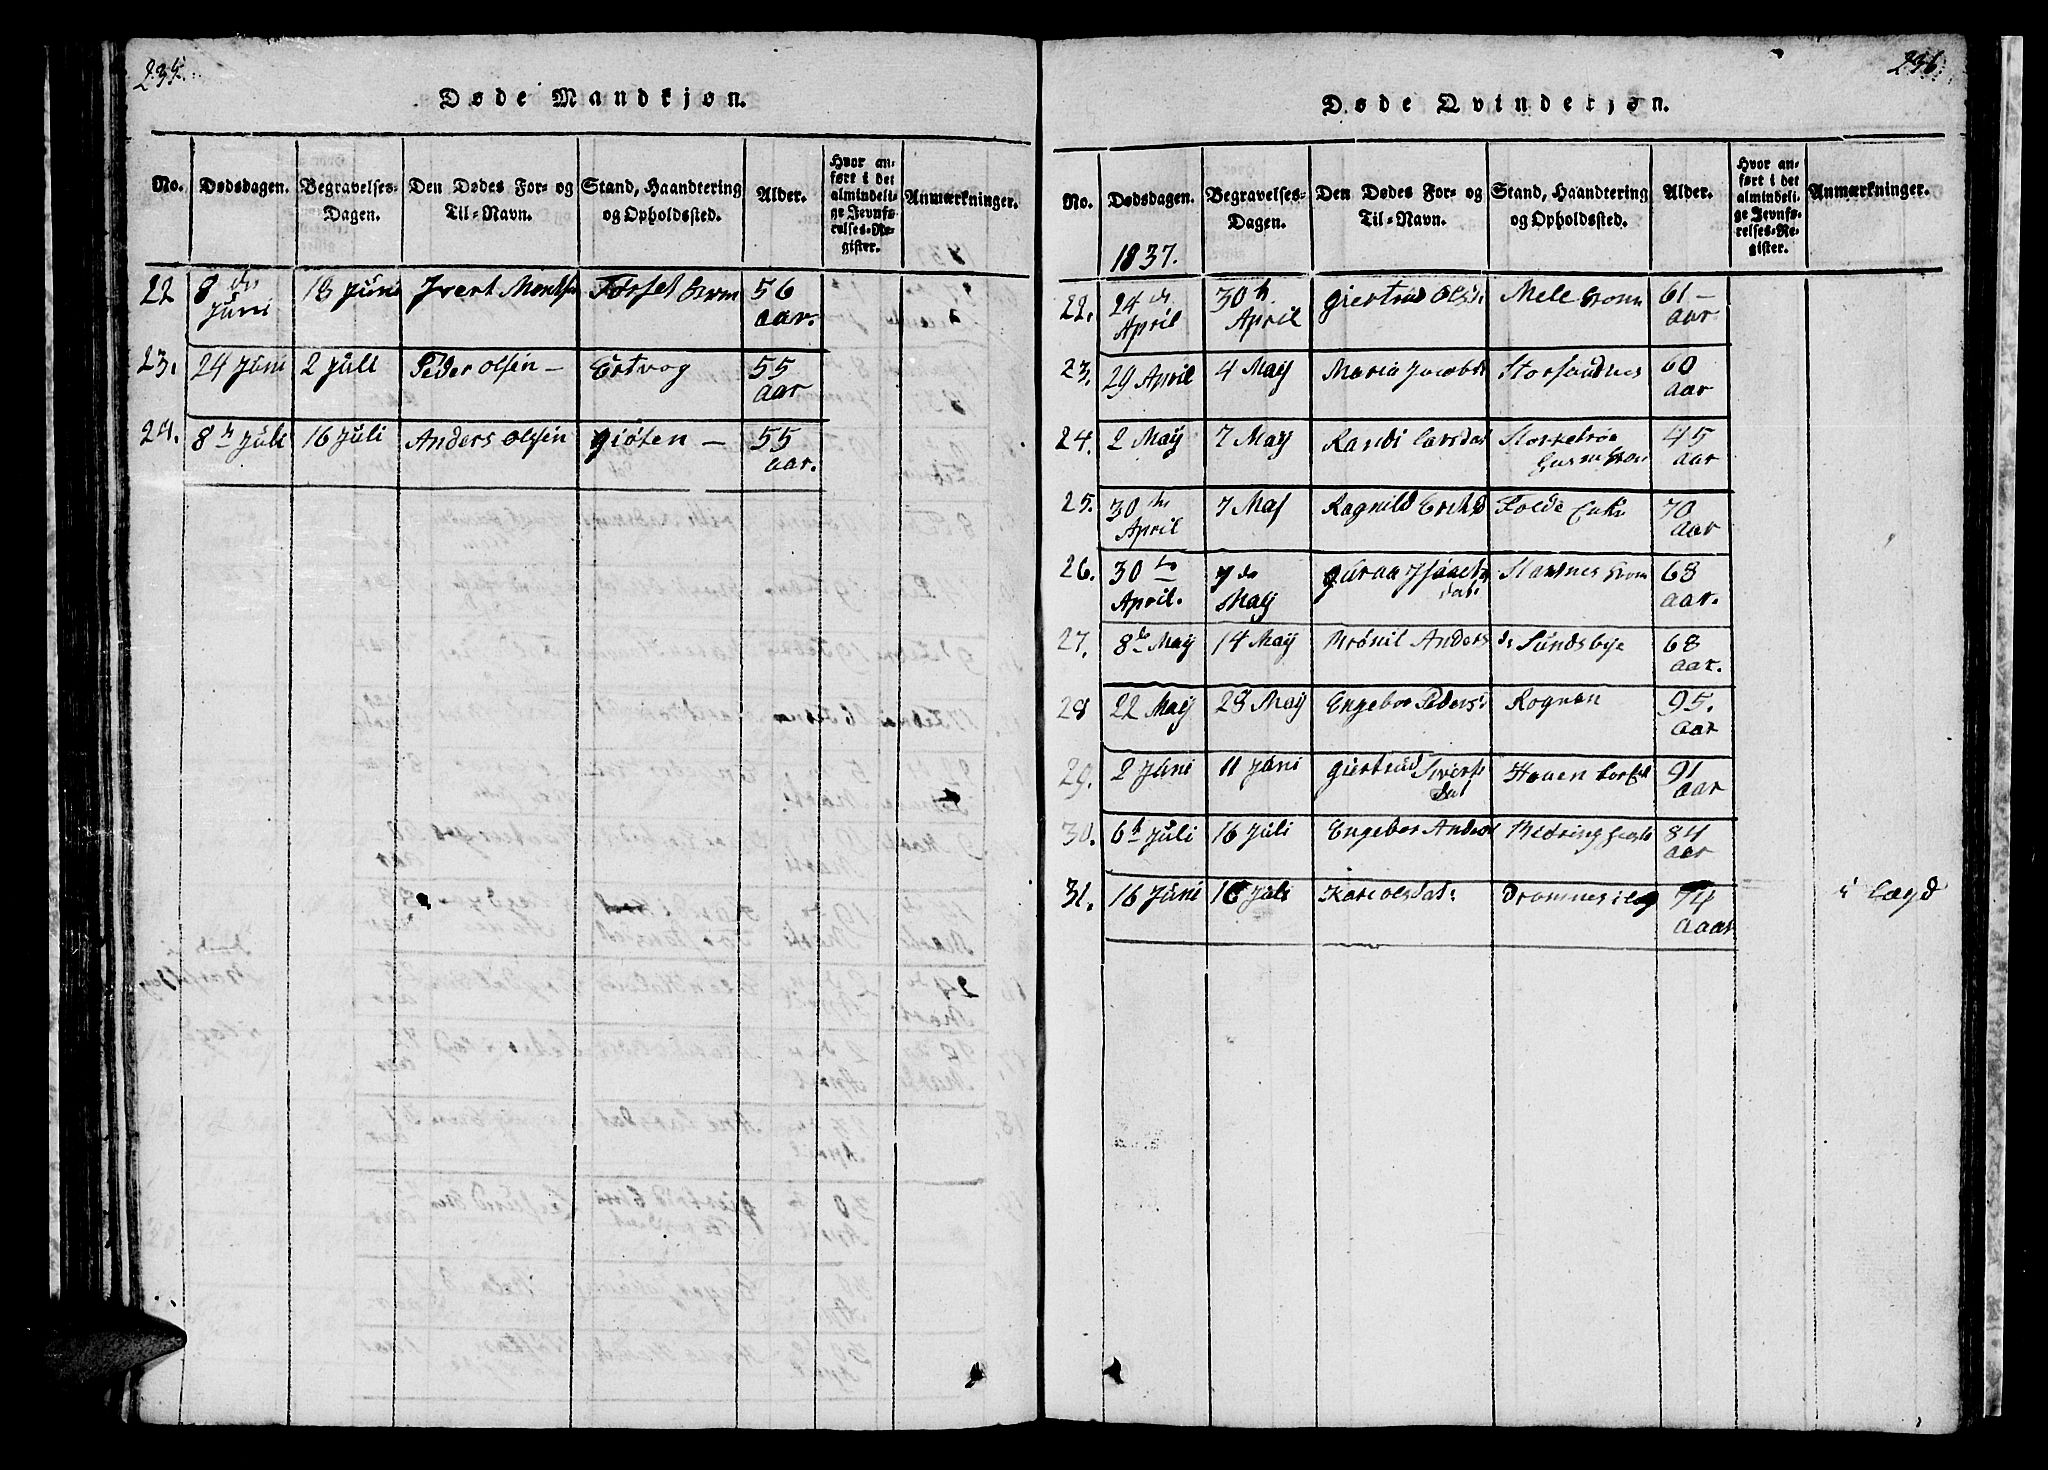 235.
Døde Mandkjøn.
No. Dødsdagen. Begravelses-Dagen. Den Dødes For- og Til-Navn. Stand, Haandtering og Opholdssted. Alder. Hvor anført i det almindelige Jevnførelses-Register. Anmærkninger.
22 8de Juni 18 Juni Ivert 56 aar.
23. 24 Juni 2 Juli Peder Olsen – Ertvog 55 aar
24. 8de Juli 16 Juli Anders Olsen giøten – 55 aar.
236
Døde Qvindekjøn.
No. Dødsdagen. Begravelses-Dagen. Den Dødes For- og Til-Navn. Stand, Haandtering og Opholdssted. Alder. Hvor anført i det almindelige Jevnførelses-Register. Anmærkninger.
1837.
22. 24de April 30te April giertrud Olsd Mele 61 – aar
23. 29 April 4 Maÿ Maria Jacobsd Storsandnes 60 aar
24. 2 Maÿ 7 Maÿ Randi Larsdat 45 aar
25. 30te April 7 Maÿ Ragnild Folde 70 aar
26. 30te April. 7de Maÿ guraa dat. 68 aar.
27. 8de Maÿ 14 Maÿ Anders dr Sundsbye 68 aar.
28 22 Maÿ 28 Maÿ Engebor Pedersd Rognan 95. aar
29. 2 Juni 11 Juni giertrud Siverts dat Hauen 91 aar
30. 6te Juli 16 Juli Engebor Andersd 84 aar
31. 16 Juni 16 Juli Kari Olsdat: Dromnes 74 aaar i Lægd